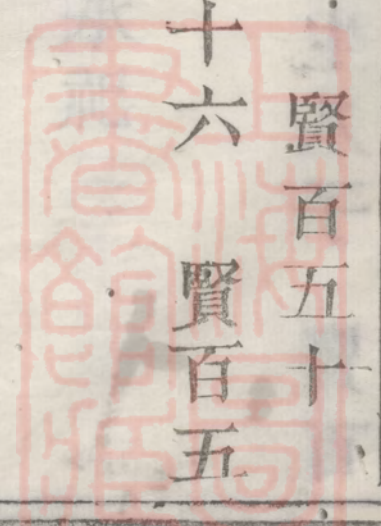 賢百五十
十六　賢百五